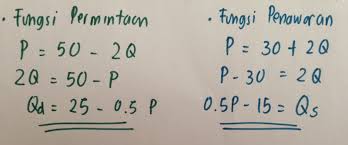 • Fungsi Permintaan
P = 50 - 2Q
2Q = 50 - P
Qd = 25 - 0.5 P
• Fungsi Penawaran
P = 30 + 2Q
P - 30 = 2Q
0.5P - 15 = Qs